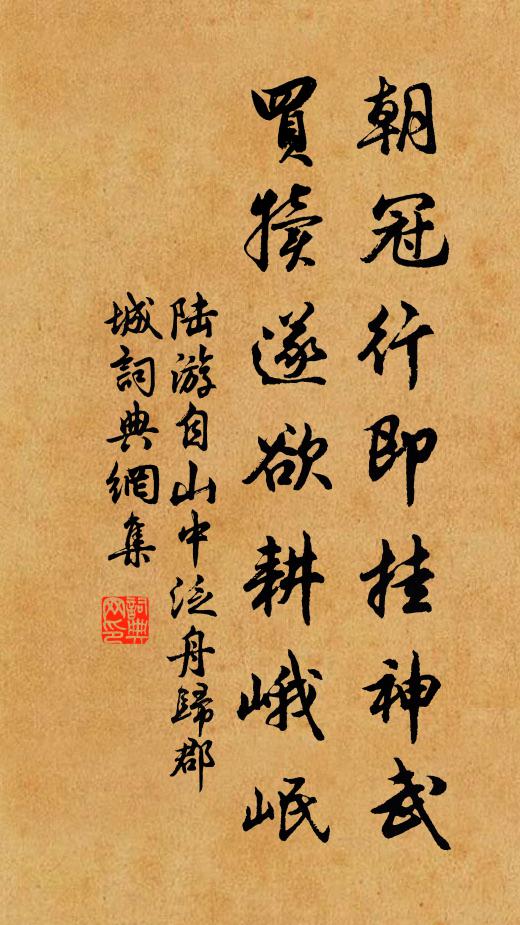 朝冠行即挂神武
買犢遂欲耕峨岷
陆游自山中泛舟歸郡
城詞典網集
詞典
网印